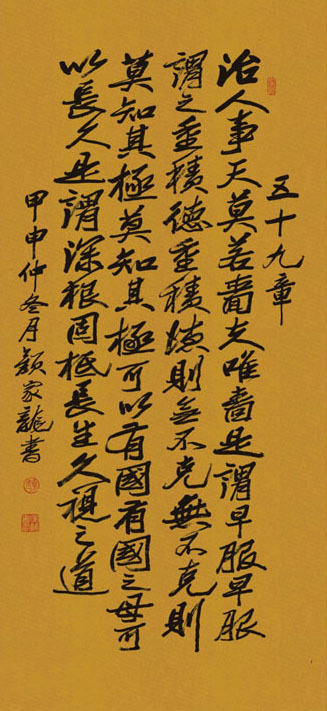 五十九章
治人事天莫若嗇夫唯嗇是謂早服早服
謂之重積德重積德則無不克無不克則
莫知其極莫知其極可以有國有國之母可
以長久是謂深根固柢長生久視之道
甲申仲冬月顏家龍書